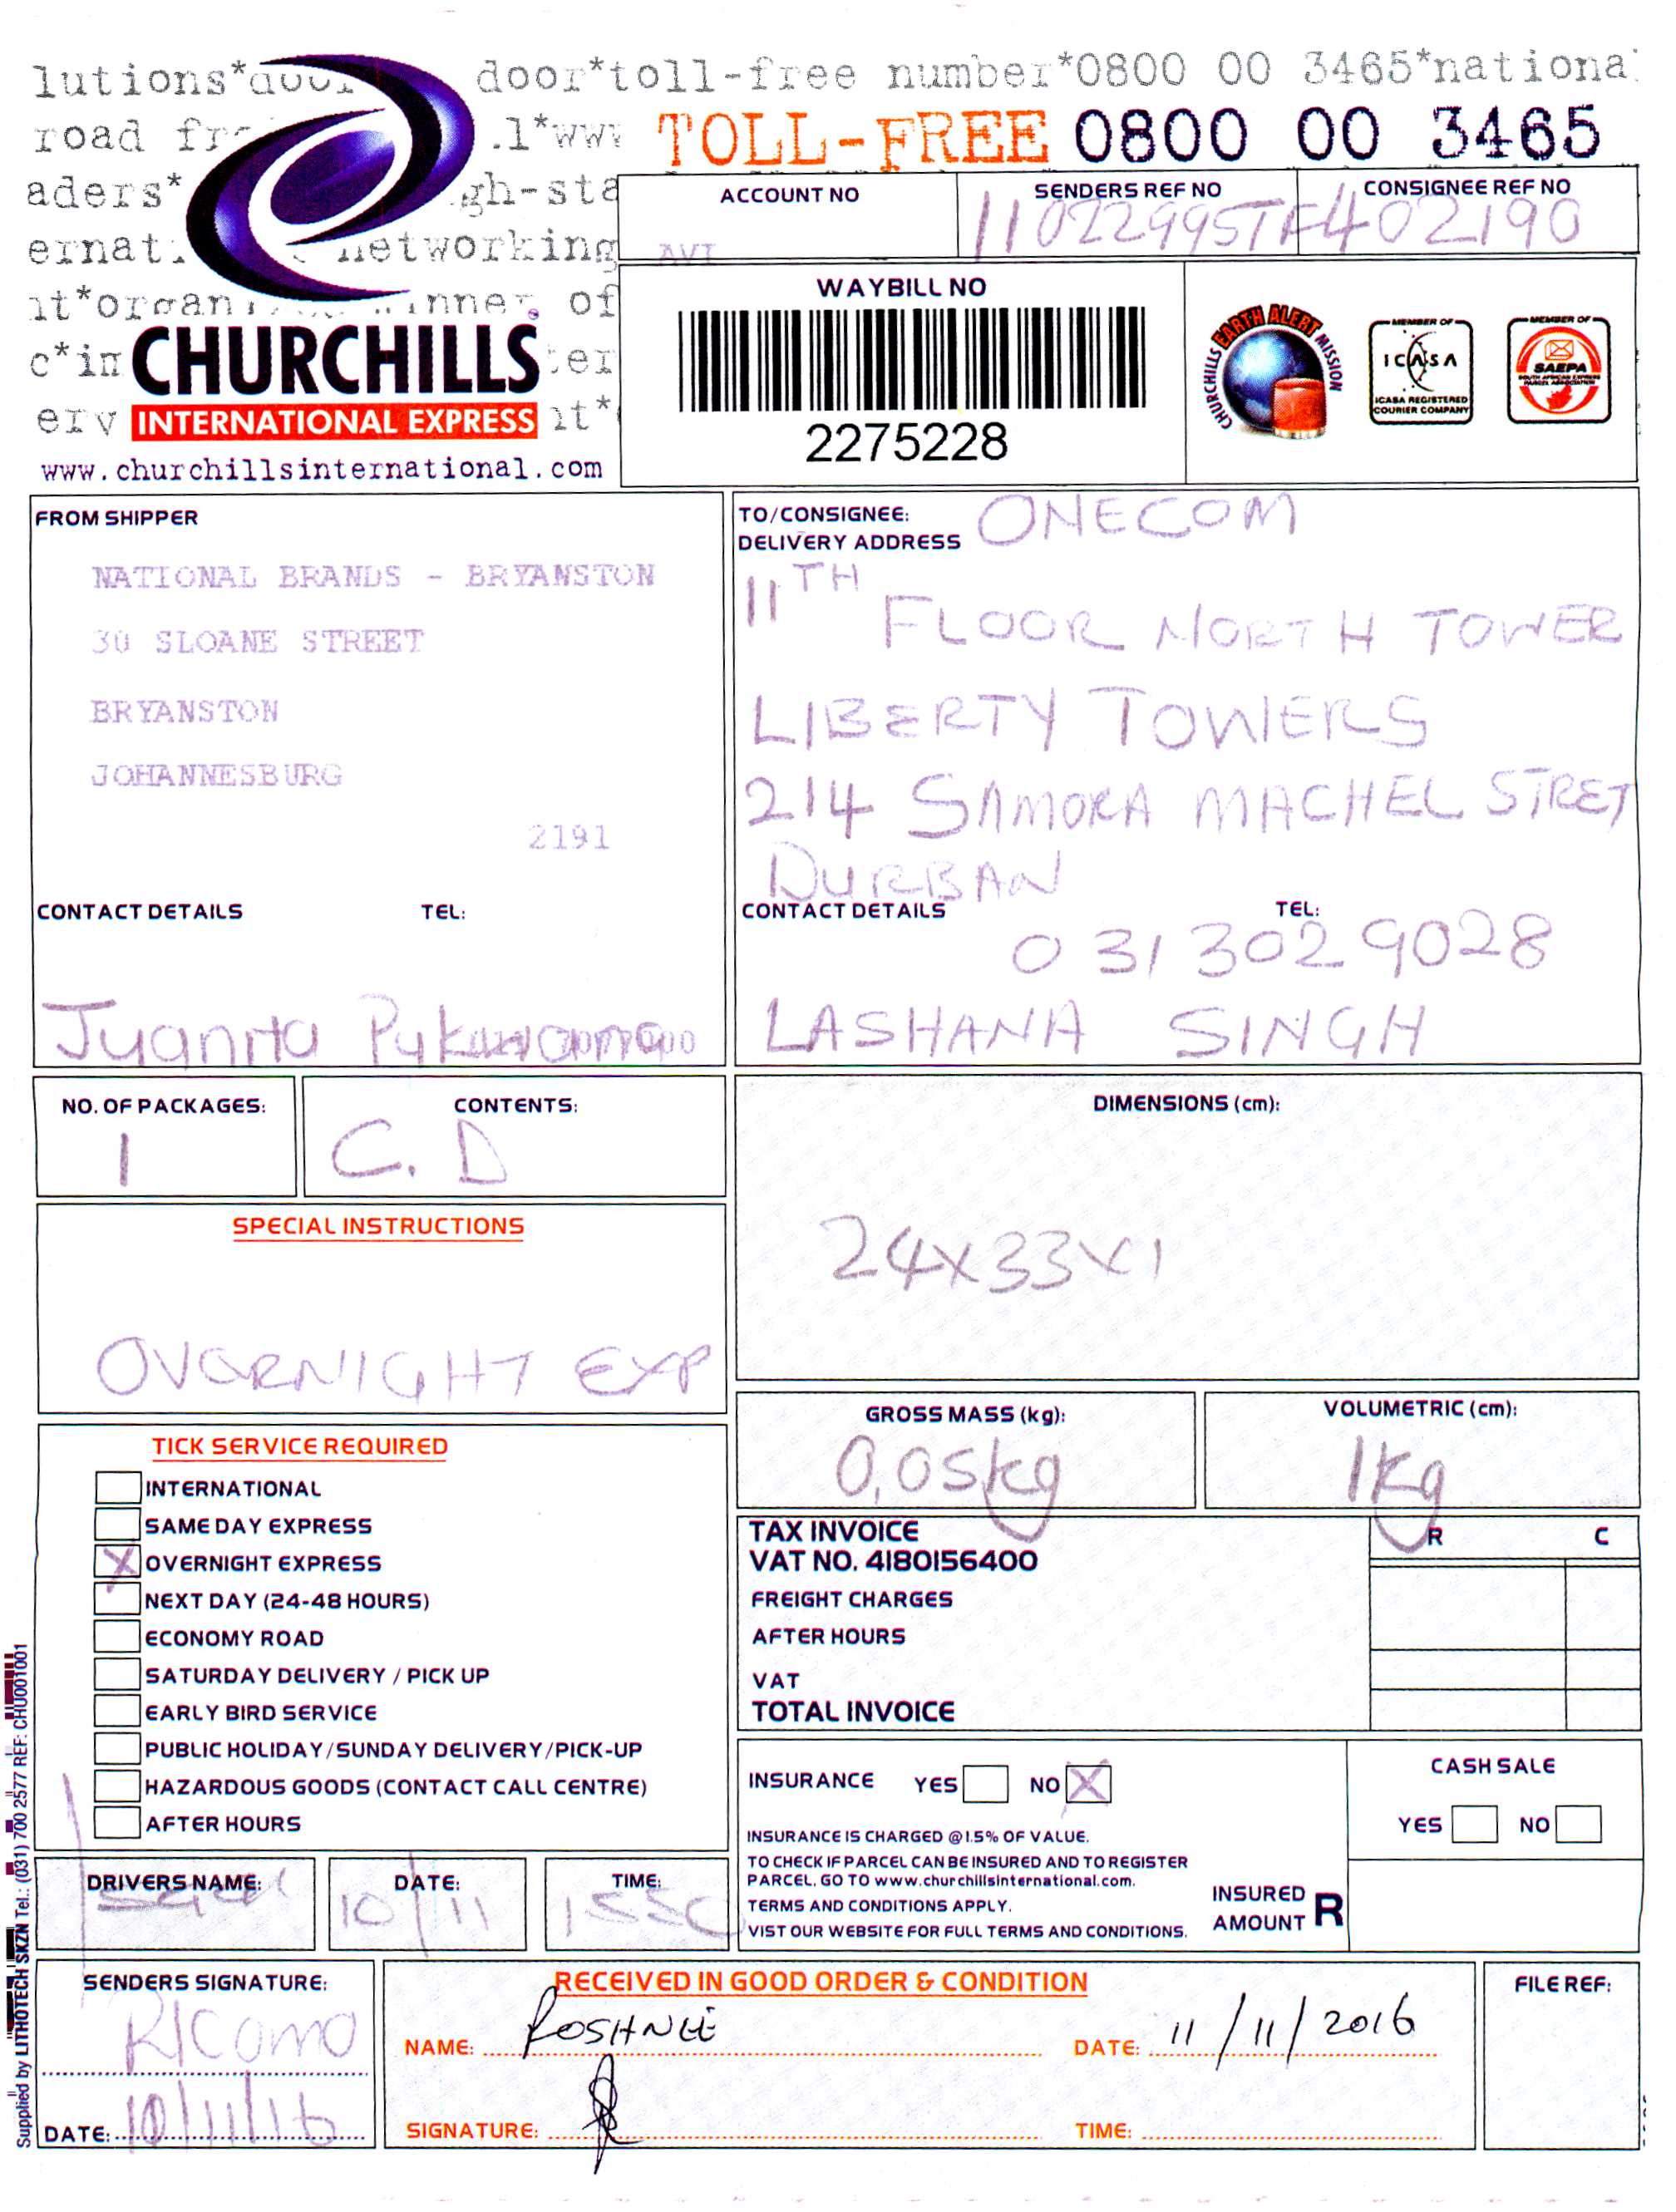 lutions*door door*toll-free number*0800 00 3465*national
road .l*www
TOLL-FREE 0800 00 3465
aders* gh-sta
networking
of
CHURCHILLS
INTERNATIONAL EXPRESS
www.churchillsinternational.com
ACCOUNT NO
AVI
SENDERS REF NO
CONSIGNEE REF NO
11022995TF402190
WAYBILL NO
2275228
CHURCHILLS EARTH ALERT MISSION
MEMBER OF
ICASA
ICASA REGISTERED
COURIER COMPANY
MEMBER OF
SAEPA
SOUTH AFRICAN EXPRESS
PARCEL ASSOCIATION
FROM SHIPPER
NATIONAL BRANDS - BRYANSTON
30 SLOANE STREET
BRYANSTON
JOHANNESBURG
2191
CONTACT DETAILS TEL:
Juanita
TO/CONSIGNEE: ONECOM
DELIVERY ADDRESS
11TH FLOOR NORTH TOWER
LIBERTY TOWERS
214 SAMORA MACHEL STRET
DURBAN
CONTACT DETAILS TEL:
031 302 9028
LASHANA SINGH
NO. OF PACKAGES:
1
CONTENTS:
C.D
DIMENSIONS (cm):
24x33x1
SPECIAL INSTRUCTIONS
OVERNIGHT EXP
GROSS MASS (kg):
0,05kg
VOLUMETRIC (cm):
1kg
TICK SERVICE REQUIRED
INTERNATIONAL
SAME DAY EXPRESS
X OVERNIGHT EXPRESS
NEXT DAY (24-48 HOURS)
ECONOMY ROAD
SATURDAY DELIVERY / PICK UP
EARLY BIRD SERVICE
PUBLIC HOLIDAY/SUNDAY DELIVERY/PICK-UP
HAZARDOUS GOODS (CONTACT CALL CENTRE)
AFTER HOURS
TAX INVOICE R C
VAT NO. 4180156400
FREIGHT CHARGES
AFTER HOURS
VAT
TOTAL INVOICE
INSURANCE YES NO X
INSURANCE IS CHARGED @1.5% OF VALUE.
TO CHECK IF PARCEL CAN BE INSURED AND TO REGISTER
PARCEL, GO TO www.churchillsinternational.com.
TERMS AND CONDITIONS APPLY.
VIST OUR WEBSITE FOR FULL TERMS AND CONDITIONS.
INSURED
AMOUNT R
CASH SALE
YES NO
DRIVERS NAME:
DATE:
10/11
TIME:
1550
SENDERS SIGNATURE:
DATE: 10/11/16
RECEIVED IN GOOD ORDER & CONDITION
NAME: ROSHNEE DATE: 11/11/2016
SIGNATURE: TIME:
FILE REF:
Supplied by LITHOTECH SKZN Tel.: (031) 700 2577 REF: CHU001001